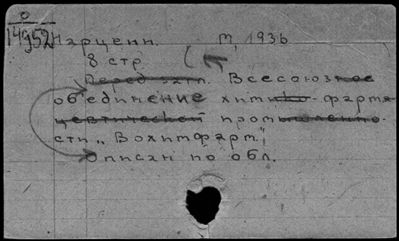 0
14952 Нарценн. М, 1936
8 стр.
Перед загл. Всесоюзное
объединение химико-фарма
цевтической промышленно
сти „Вохимфарм"
Описан по обл.